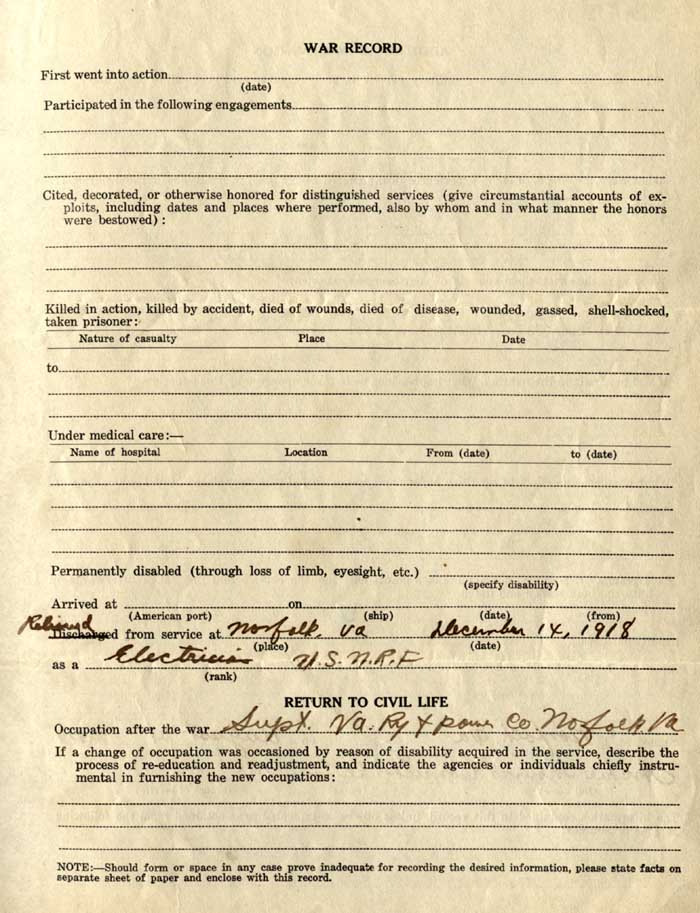 WAR RECORD
First went into action
(date)
Participated in the following engagements
Cited, decorated, or otherwise honored for distinguished services (give circumstantial accounts of ex-
ploits, including dates and places where performed, also by whom and in what manner the honors
were bestowed):
Killed in action, killed by accident, died of wounds, died of disease, wounded, gassed, shell-shocked,
taken prisoner:
Nature of casualty Place Date
to
Under medical care:—
Name of hospital Location From (date) to (date)
Permanently disabled (through loss of limb, eyesight, etc.)
(specify disability)
Arrived at on
(American port) (ship) (date) (from)
Discharged from service at Norfolk, Va December 14, 1918
(place) (date)
as a Electrician U.S.N.R.F
(rank)
RETURN TO CIVIL LIFE
Occupation after the war Supt. Va. Ry & power Co. Norfolk Va
If a change of occupation was occasioned by reason of disability acquired in the service, describe the
process of re-education and readjustment, and indicate the agencies or individuals chiefly instru-
mental in furnishing the new occupations:
NOTE:—Should form or space in any case prove inadequate for recording the desired information, please state facts on
separate sheet of paper and enclose with this record.